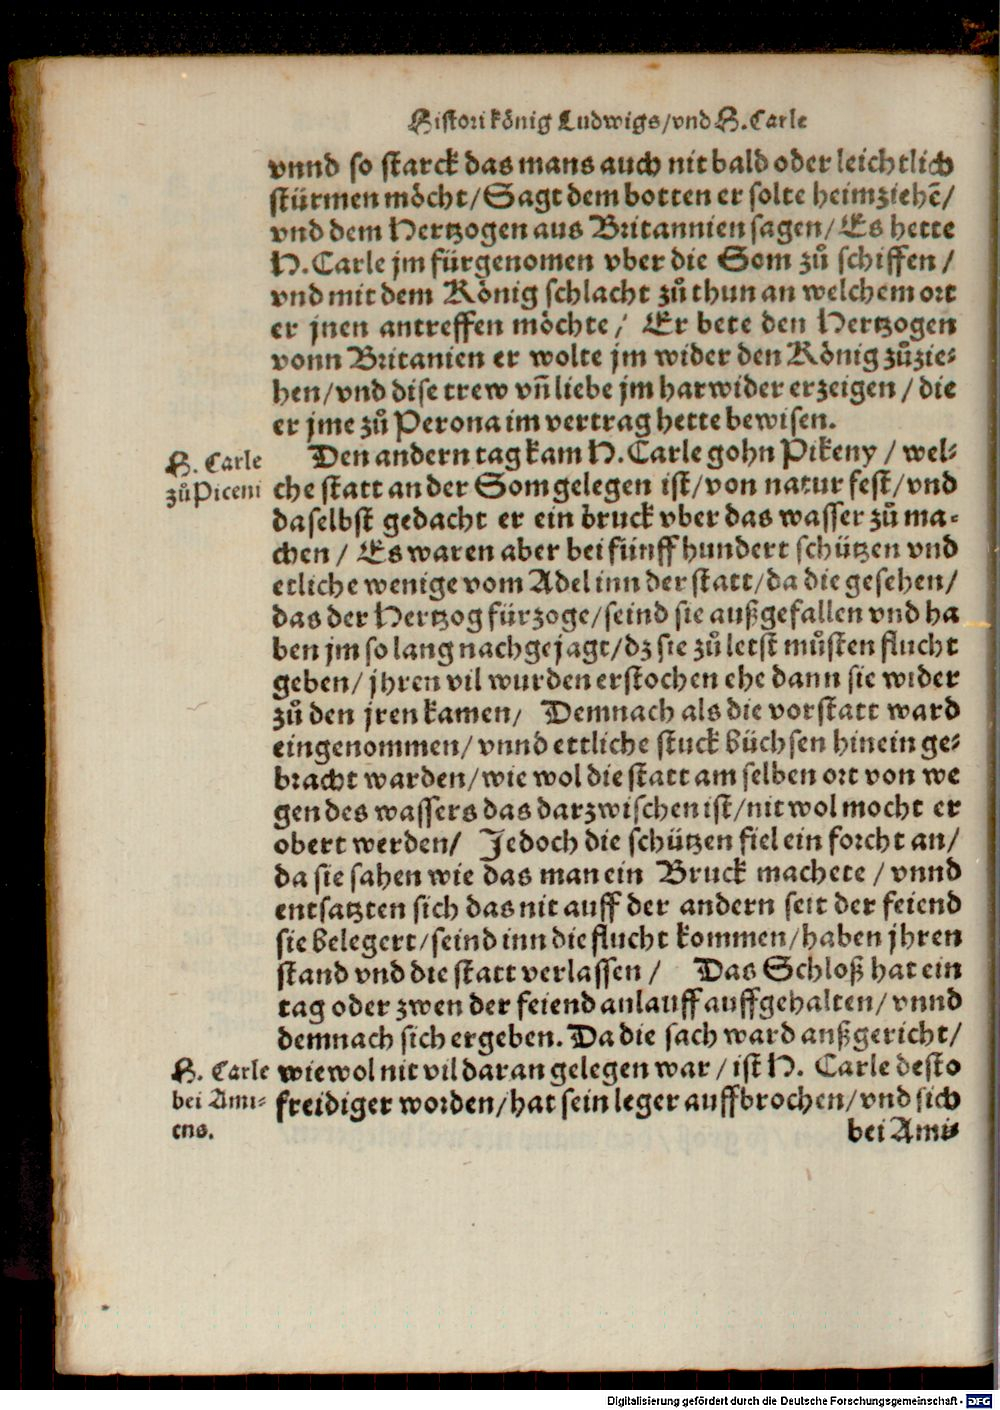 Histori könig Ludwigs/vnd H.Carle
vnnd so starck das mans auch nit bald oder leichtlich
stürmen möcht/Sagt dem botten er solte heimziehẽ/
vnd dem Hertzogen aus Britannien sagen/Es hette
H.Carle jm fürgenomen vber die Som zů schiffen/
vnd mit dem König schlacht zů thun an welchem ort
er jnen antreffen möchte/ Er bete den Hertzogen
vonn Britanien er wolte jm wider den König zůzie-
hen/vnd dise trew vñ liebe jm harwider erzeigen/die
er jme zů Perona im vertrag hette bewisen.
H. Carle
zů Piceni
Den andern tag kam H.Carle gohn Pikeny/wel-
che statt an der Som gelegen ist/von natur fest/vnd
daselbst gedacht er ein bruck vber das wasser zů ma-
chen/ Es waren aber bei fünff hundert schützen vnd
etliche wenige vom Adel inn der statt/da die gesehen/
das der Hertzog fürzoge/seind sie außgefallen vnd ha
ben jm so lang nachgejagt/dz sie zů letst můsten flucht
geben/jhren vil wurden erstochen ehe dann sie wider
zů den jren kamen/ Demnach als die vorstatt ward
eingenommen/vnnd ettliche stuck büchsen hinein ge-
bracht warden/wie wol die statt am selben ort von we
gen des wassers das darzwischen ist/nit wol mocht er
obert werden/ Jedoch die schützen fiel ein forcht an/
da sie sahen wie das man ein Bruck machete/vnnd
entsatzten sich das nit auff der andern seit der feiend
sie belegert/seind inn die flucht kommen/haben jhren
stand vnd die statt verlassen/ Das Schloß hat ein
tag oder zwen der feiend anlauff auffgehalten/vnnd
demnach sich ergeben. Da die sach ward außgericht/
H. Carle
bei Ami-
ens.
wiewol nit vil daran gelegen war/ist H. Carle desto
freidiger worden/hat sein leger auffbrochen/vnd sich
bei Ami-
Digitalisierung gefördert durch die Deutsche Forschungsgemeinschaft - DFG